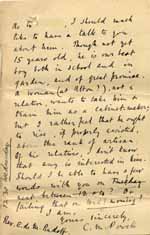 As to        , I should much
like to have a talk to you
about him. Though not yet
15 years old, he is our best
boy both in school and in
garden, and of great promise.
A woman (at Alton?), not a
relation, wants to take him &
train him as a cabinet maker,
but I rather feel that he ought
to rise, if properly assisted,
above the rank of artisan.
Of his relatives, I don't know
that any is interested in him.
Should I be able to have a few
words with you on Tuesday
next between
failing that on
I am,
Yours sincerely,
Rev. E. de M. Rudolf